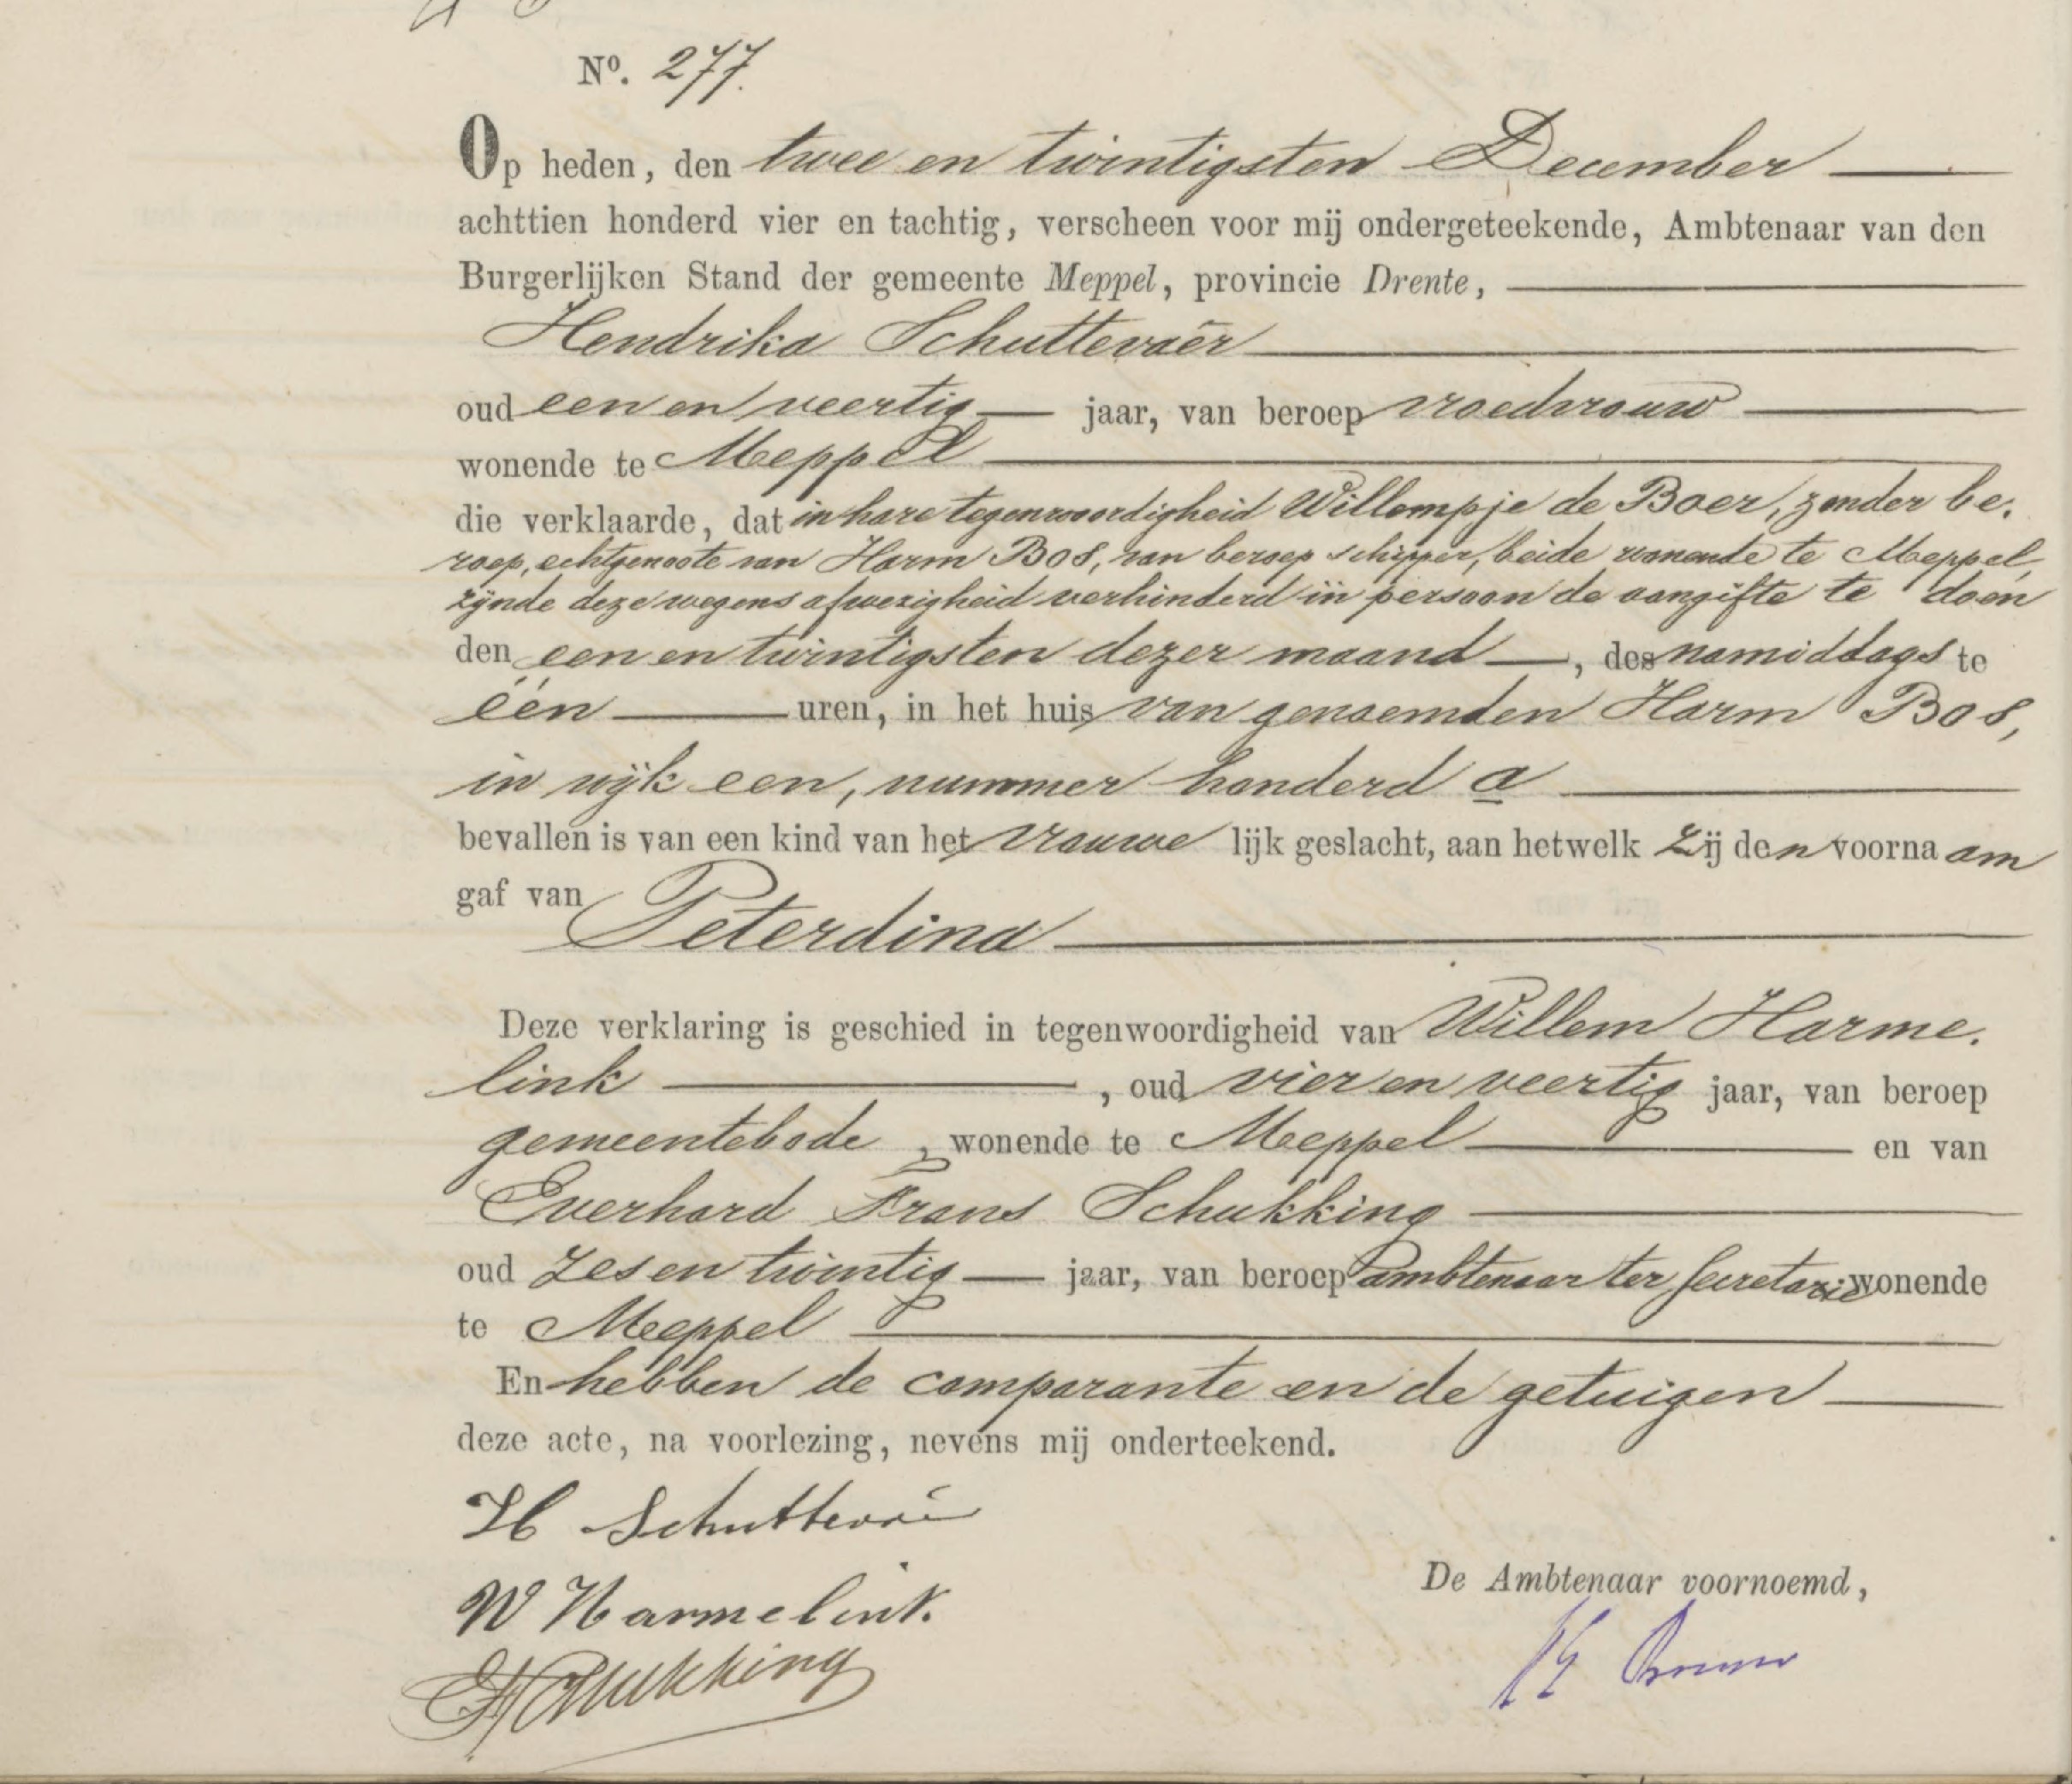 No. 277.
Op heden, den twee en twintigsten December
achttien honderd vier en tachtig, verscheen voor mij ondergeteekende, Ambtenaar van den
Burgerlijken Stand der gemeente Meppel, provincie Drente,
Hendrika Schuttevaêr
oud een en veertig jaar, van beroep vroedvrouw
wonende te Meppel
die verklaarde, dat in hare tegenwoordigheid Willempje de Boer, zonder be-
roep, echtgenoote van Harm Bos, van beroep schipper, beide wonende te Meppel,
zijnde deze wegens afwezigheid verhinderd in persoon de aangifte te doen
den een en twintigsten dezer maand, des namiddags te
één uren, in het huis van genoemden Harm Bos,
in wijk een, nummer honderd a
bevallen is van een kind van het vrouwe lijk geslacht, aan hetwelk zij den voornaam
gaf van Peterdina
Deze verklaring is geschied in tegenwoordigheid van Willem Harme-
link, oud vier en veertig jaar, van beroep
gemeentebode, wonende te Meppel en van
Everhard Frans Schukking
oud zes en twintig jaar, van beroep ambtenaar ter secretarie wonende
te Meppel
En hebben de comparante en de getuigen
deze acte, na voorlezing, nevens mij onderteekend.
H Schuttevaêr
W Harmelink.
EFSchukking
De Ambtenaar voornoemd,